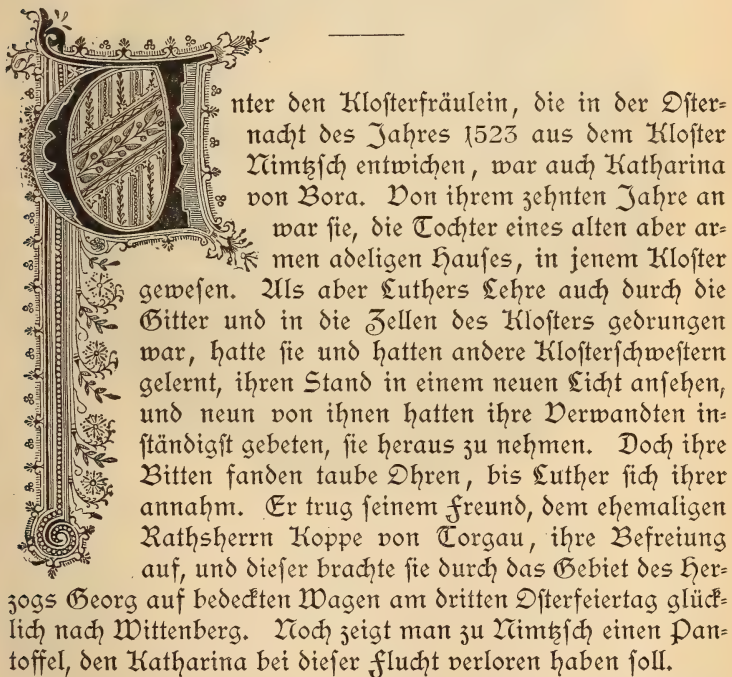 Unter den Klosterfräulein, die in der Oster=
nacht des Jahres 1523 aus dem Kloster
Nimtzsch entwichen, war auch Katharina
von Bora. Von ihrem zehnten Jahre an
war sie, die Tochter eines alten aber ar=
men adeligen Hauses, in jenem Kloster
gewesen. Als aber Luthers Lehre auch durch die
Gitter und in die Zellen des Klosters gedrungen
war, hatte sie und hatten andere Klosterschwestern
gelernt, ihren Stand in einem neuen Licht ansehen,
und neun von ihnen hatten ihre Verwandten in=
ständigst gebeten, sie heraus zu nehmen. Doch ihre
Bitten fanden taube Ohren, bis Luther sich ihrer
annahm. Er trug seinem Freund, dem ehemaligen
Rathsherrn Koppe von Torgau, ihre Befreiung
auf, und dieser brachte sie durch das Gebiet des Her=
zogs Georg auf bedeckten Wagen am dritten Osterfeiertag glück=
lich nach Wittenberg. Noch zeigt man zu Nimtzsch einen Pan=
toffel, den Katharina bei dieser Flucht verloren haben soll.